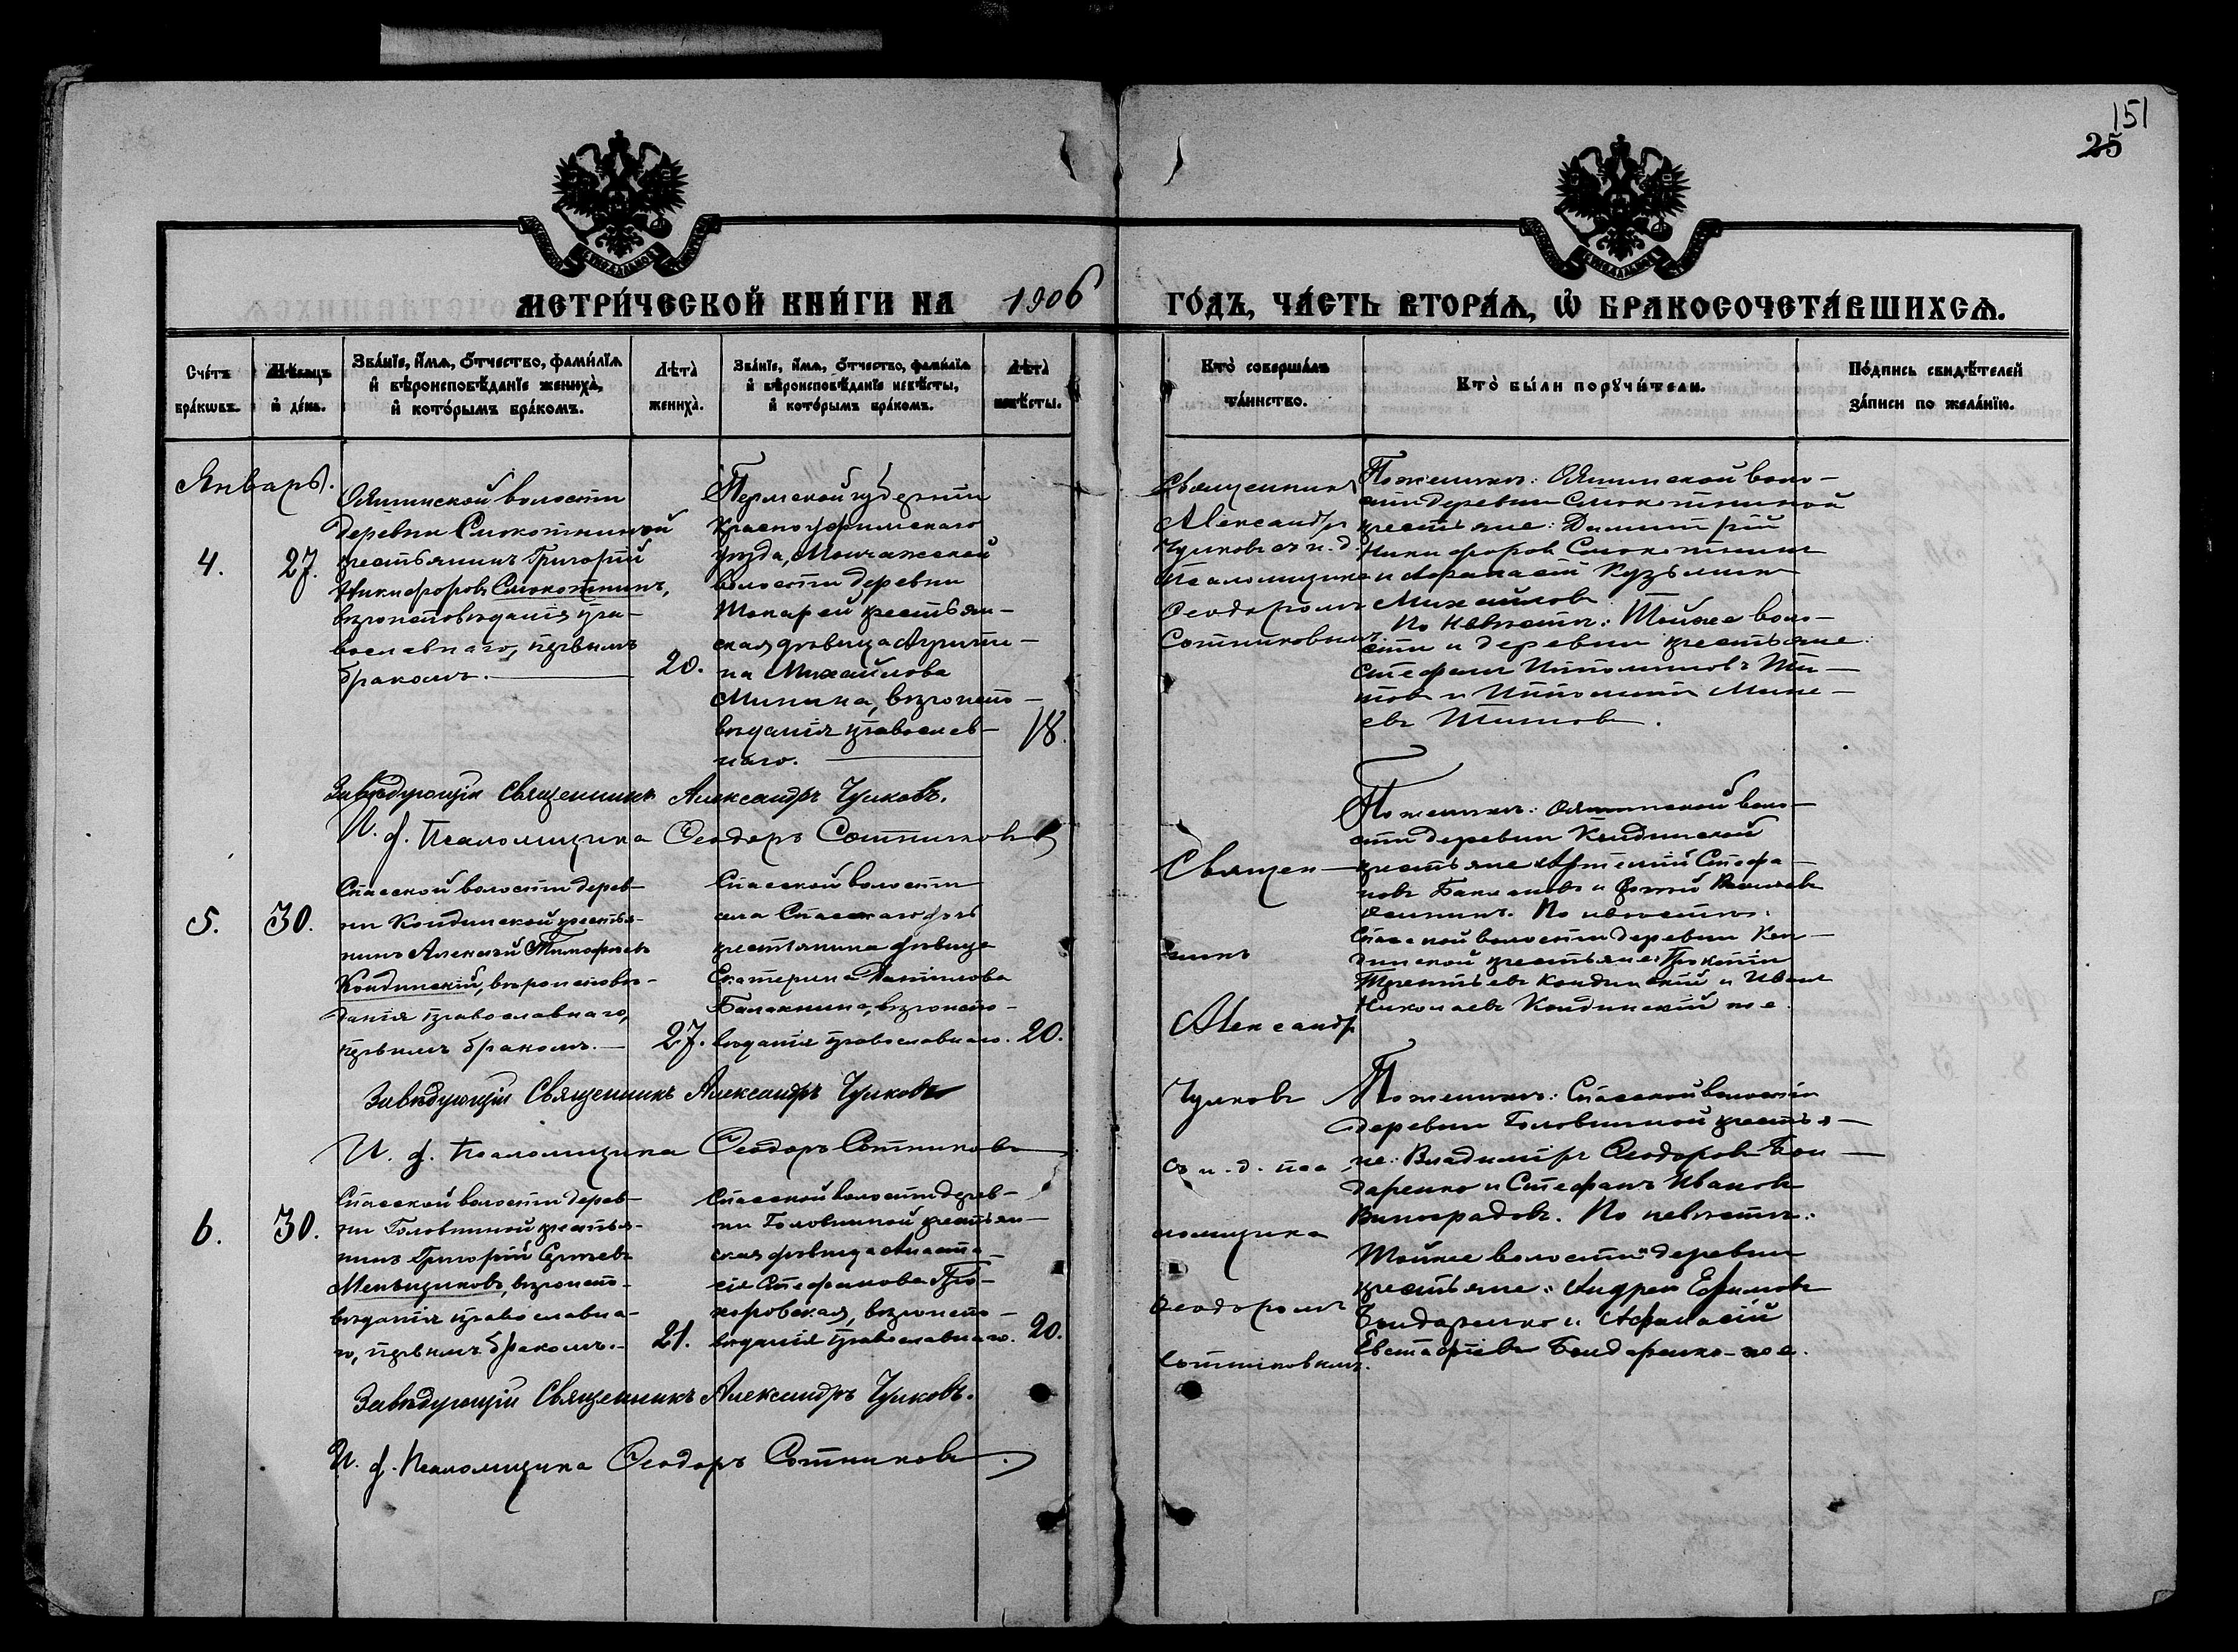 151
25
МЕТРИ́ЧЕСКОЙ КНИ́ГИ НА 1906
ГО́ДЪ, ЧА́СТЬ ВТОРА́Я, Ѡ БРАКОСОЧЕТА́ВШИХСЯ.
Сче́тъ бра́кѡвъ.
Мѣ́сяцъ и де́нь.
Зва́нїе, и́мя, ѻ́тчество, фами́лїя
и вѣроисповѣ́данїе жениха̀,
и кото́рымъ бра́комъ.
Лѣ́та
жениха̀.
Зва́нїе, и́мя, ѻ́тчество, фами́лїя
и вѣроисповѣ́данїе невѣ́сты,
и кото́рымъ бра́комъ.
Лѣ́та
невѣ́сты.
Кто̀ соверша́лъ
та́инство.
Кто̀ бы́ли порꙋчи́тели.
По́дпись свидѣ́телей
за́писи по жела́нїю.
Январь.
4.
27.
Ояшинской волости
деревни Смокотниной
крестьянинъ Григорій
Никифоровъ Смокотнинъ,
вѣроисповѣданія пра-
вославнаго, первымъ
бракомъ.
20.
Пермской губерніи
Красноуфимскаго
уѣзда, Молчажской
волости деревни
Токарей крестьян-
ская дѣвица Агрипи-
на Михайлова
Минина, вѣроиспо-
вѣданія православ-
наго.
18.
Священникъ
Александръ
Чулковъ съ и. д.
Псаломщика
Ѳеодоромъ
Сотниковымъ
По женихѣ: Ояшинской воло-
сти деревни Смокотниной
крестьяне: Димитрій
Никифоровъ Смокотнинъ
и Афанасій Кузьминъ
Михайловъ.
По невѣстѣ: Той же воло-
сти и деревни крестьяне:
Стефанъ Ипполитовъ Ти-
товъ и Ипполитъ
Титовъ.
Завѣдующій Священникъ Александръ Чулковъ.
И. д. Псаломщика Ѳеодоръ Сотниковъ
5.
30.
Спасской волости дерев-
ни Кондинской крестья-
нинъ Алексѣй Тимофѣевъ
Кондинскій, вѣроисповѣ-
данія православнаго,
первымъ бракомъ.
27.
Спасской волости
села Спасскаго дочь
крестьянина дѣвица
Екатерина Даніилова
Балакина, вѣроиспо-
вѣданія православнаго.
20.
Священ-
никъ
Александръ
Чулковъ
съ и. д. пса
ломщика
Ѳеодоромъ
Сотниковымъ.
По женихѣ: Ояшинской воло-
сти деревни Кондинской
крестьяне Артемій Стефа-
новъ и
По невѣстѣ:
Спасской волости деревни Кон-
динской крестьяне: Прокопій
Терентьевъ Кондинскій и Иванъ
Николаевъ Кондинскій же.
Завѣдующій Священникъ Александръ Чулковъ
И. д. Псаломщика Ѳеодоръ Сотниковъ
6.
30.
Спасской волости дерев-
ни Головниной крестья-
нинъ Григорій Сергѣевъ
Меньщиковъ, вѣроиспо-
вѣданія православна-
го, первымъ бракомъ.
21.
Спасской волости дерев-
ни Головниной крестьян-
ская дѣвица Анаста-
сія Стефанова
вѣроиспо-
вѣданія православнаго.
20.
По женихѣ: Спасской волости
деревни Головниной крестья-
не: Владиміръ Ѳеодоровъ Бон-
даренко и Стефанъ Ивановъ
Виноградовъ. По невѣстѣ:
Той же волости и деревни
крестьяне: Андрей Ефимовъ
Бондаренко и Афанасій
Евстафіевъ Бондаренко-же.
Завѣдующій Священникъ Александръ Чулковъ.
И. д. Псаломщика Ѳеодоръ Сотниковъ.